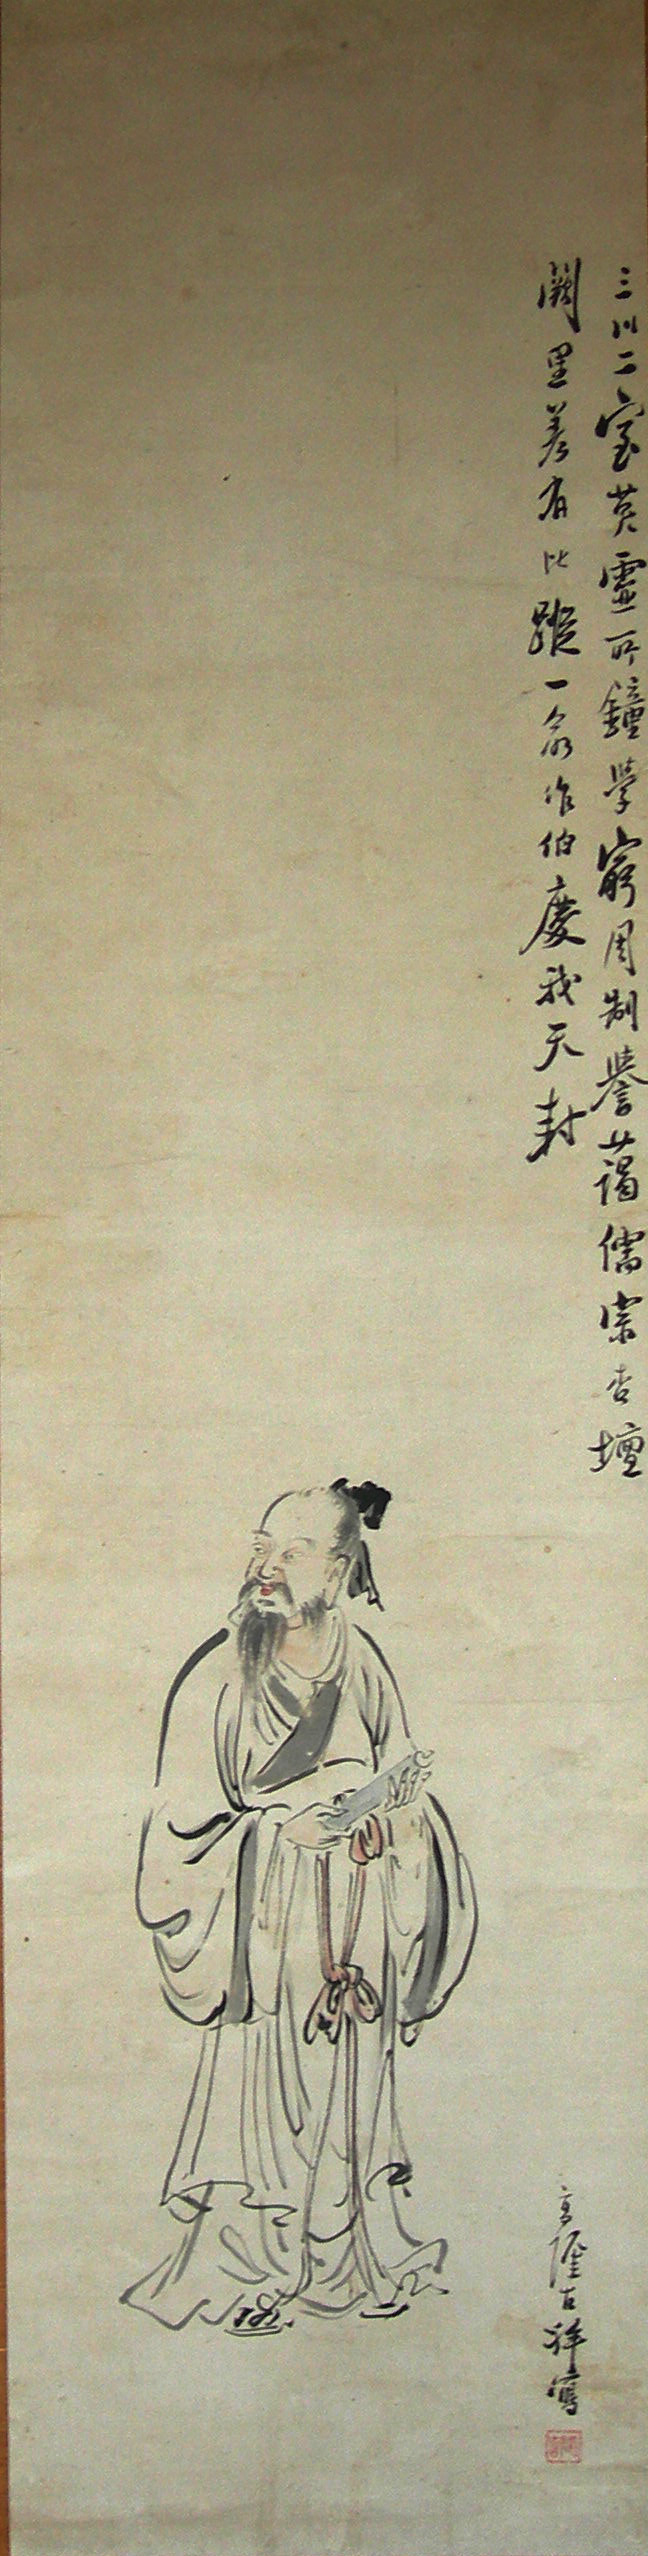 三川二室英靈所鐘學窮周制譽藹儒宗杏壇
闕里差有比蹤一命作伯慶我天封
吉祥寫